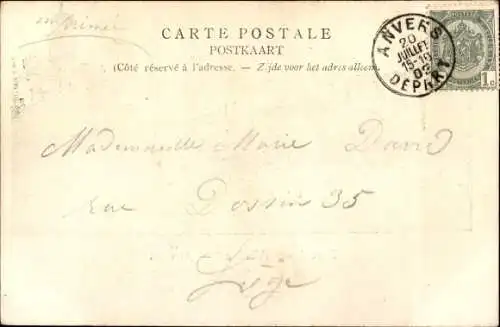 imprimé
CARTE POSTALE
POSTKAART
(Côté réservé à l'adresse. — Zijde voor het adres alleen.)
ANVERS
20
JUILLET
15-10
02
DÉPART
1c
Mademoiselle Marie David
rue Dossin 35
Liège